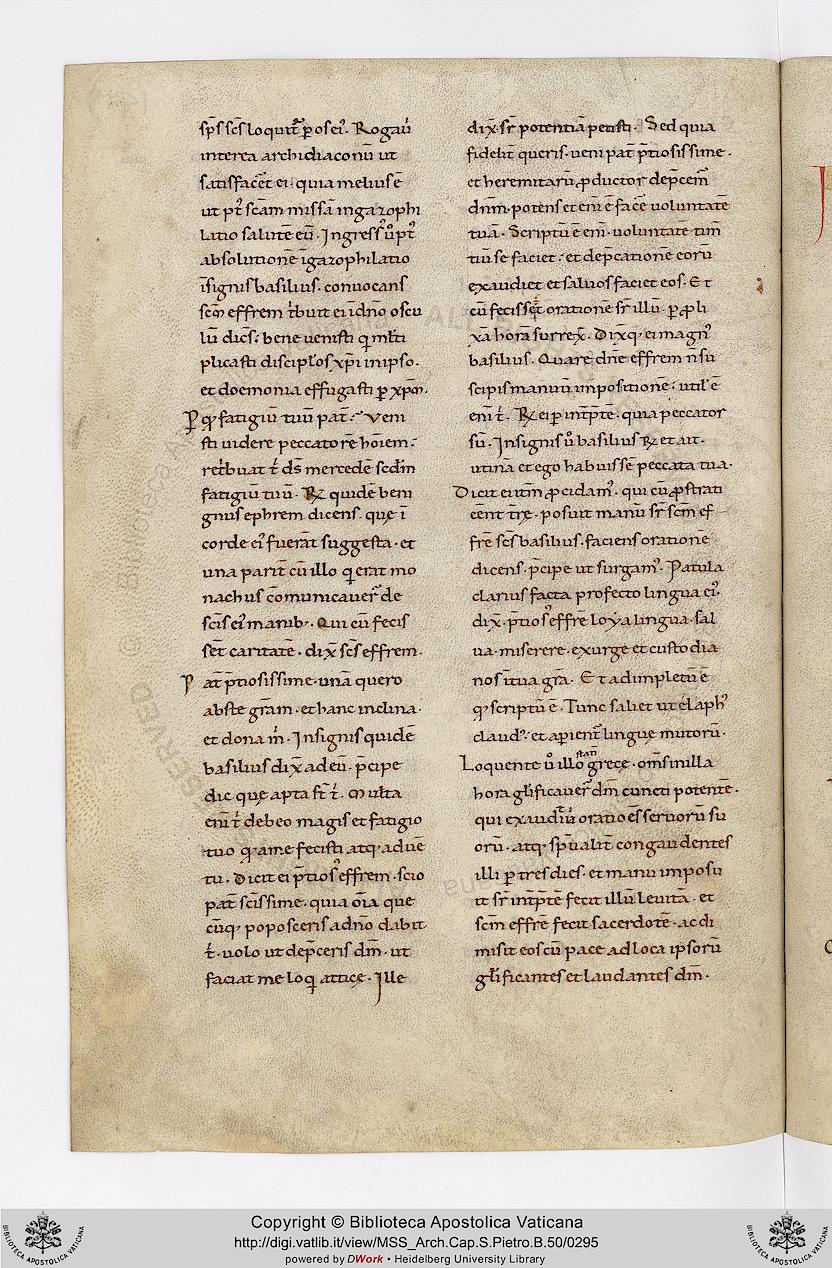 sp̄s sc̄s loquit᷑ p̱ os ei᾽. Rogau᷑
interea archidiaconū ut
satisfac̄et ei. quia melius ē
ut p᷑t scām missā in gazophi
latio salutē eū. Ingress᾽ u᷑o p᷑t
absolutionē ī gazophilatio
īsignis basilius. conuocans
scm̄ effrem t᷑buit ei ī dn̄o oscu
lū dicēs. bene uenisti qi ml̄ti
plicasti discipłos xp̄i in ipso.
et doemonia effugasti p̱ xp̄m.
P̱ qd̛ fatigiū tuū pat᷑. Veni
sti uidere peccatorē hōiem.
ret᷑buat t̄ ds̄ mercedē scdm̄
fatigiū tuū. R̸ quidē beni
gnus ephrem dicens. que ī
corde ei᾽ fuerāt suggesta. et
una parit᷑ cū illo qi erat mo
nachus cōmunicauer᷑ de
scīs ei᾽ manib᾽. Qui cū fecis
set caritatē. dix̄ sc̄s effrem.
Pat᷑ p᷑tiosissime. unā quero
abs te grām. et hanc inclina.
et dona m̄. Insignis quidē
basilius dix̄ ad eū. p᷑cipe
dic que apta st̄ t̄. Multa
enī t̄ debeo magis et fatigio
tuo qd̛ a me fecisti atq᾽ aduē
tu. Dicit ei p᷑tios᾽ effrem. scio
pat᷑ scīssime. quia oīa que
cūq᾽ poposceris a dn̄o dabit
t̄. uolo ut dep᷑ceris dm̄. ut
faciat me loqi attice. Ille
dix̄. sr̄ potentiā petisti. Sed quia
fidelit᷑ queris. ueni pat᷑ p᷑tiosissime.
et heremitarū p̱ductor dep᷑cem̄
dn̄m. potens et enī ē facē uoluntatē
tuā. Scriptū ē enī. uoluntatē tim̄
tiū se faciet. et dep᷑cationē eorū
exaudiet et saluos faciet eos. Et
cū fecissēt orationē sr̄ illū. p̱ p̱li
xā horā surrex̄. Dixq᾽ ei magn᾽
basilius. Quare dn̄e effrem n̄ su
scipis manuū impositionē. util᾽ ē
enī t̄. R̸ ei p̱ int᷑p᷑tē. quia peccator
sū. Insignis u᷑o basilius R̸ et ait.
utinā et ego habuissē peccata tua.
Dicit ei itm̄ p̱cidam᾽. qui cū p̱strati
cēnt t᷑re. posuit manū sr̄ scm̄ ef
frē sc̄s basilius. faciens orationē
dicens. p᷑cipe ut surgam᾽. Patula
clarius facta profecto lingua ei᾽.
dix̄. p᷑tios᾽ effre loÿa lingua. sal
ua. miserere. exurge et custodia
nos ī tua grā. Et adimpletū ē
qd̛ scriptū ē. Tunc saliet ut elaph᾽
claud᾽. et apient᷑ lingue mutorū.
statī
Loquente u᷑o illo grece. om̄s in illa
hora głificauer᷑ dm̄ cuncti potentē.
qui exaudiuit oratiōes seruorū su
orū. atq᾽ sp̄ualit᷑ congaudentes
illi p̱ tres dies. et manu imposu
it sr̄ int᷑p᷑tē fecit illū leuitā. et
scm̄ effrē fecit sacerdotē. ac di
misit eos cū pace ad loca ipsorū
głificantes et laudantes dm̄.
Copyright © Biblioteca Apostolica Vaticana
http://digi.vatlib.it/view/MSS_Arch.Cap.S.Pietro.B.50/0295
powered by DWork • Heidelberg University Library